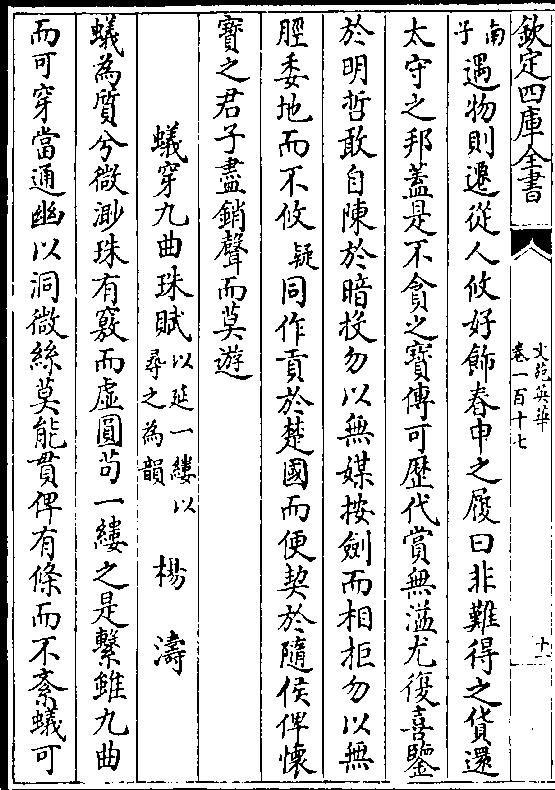 欽定四庫全書
文苑英華
卷一百十七
十一
南子遇物則遷從人攸好飾春申之履曰非難得之貨還
太守之邦蓋是不貪之寶傳可歷代賞無溢尤復喜鑒
於明哲敢自陳於暗投勿以無媒按劍而相拒勿以無
脛委地而不攸疑同作貢於楚國而便契於隨侯俾懷
寳之君子盡銷聲而莫遊
蟻穿九曲珠賦以延一縷以尋之為韻 楊濤
蟻為質兮微渺珠有竅而虛圓茍一縷之是繫雖九曲
而可穿當通幽以洞微絲莫能貫俾有條而不紊蟻可